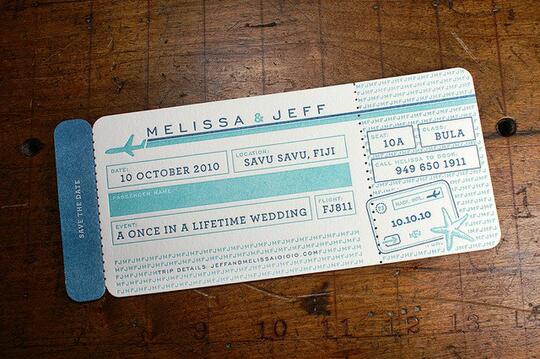 SAVE THE DATE
MELISSA & JEFF
DATE:
10 OCTOBER 2010
LOCATION:
SAVU SAVU, FIJI
PASSENGER NAME:
EVENT:
A ONCE IN A LIFETIME WEDDING
FLIGHT:
FJ811
TRIP DETAILS: JEFFANDMELISSA101010.COM
SEAT:
10A
CLASS:
BULA
CALL MELISSA TO BOOK:
949 650 1911
10.10.10
9 10 11 12 13